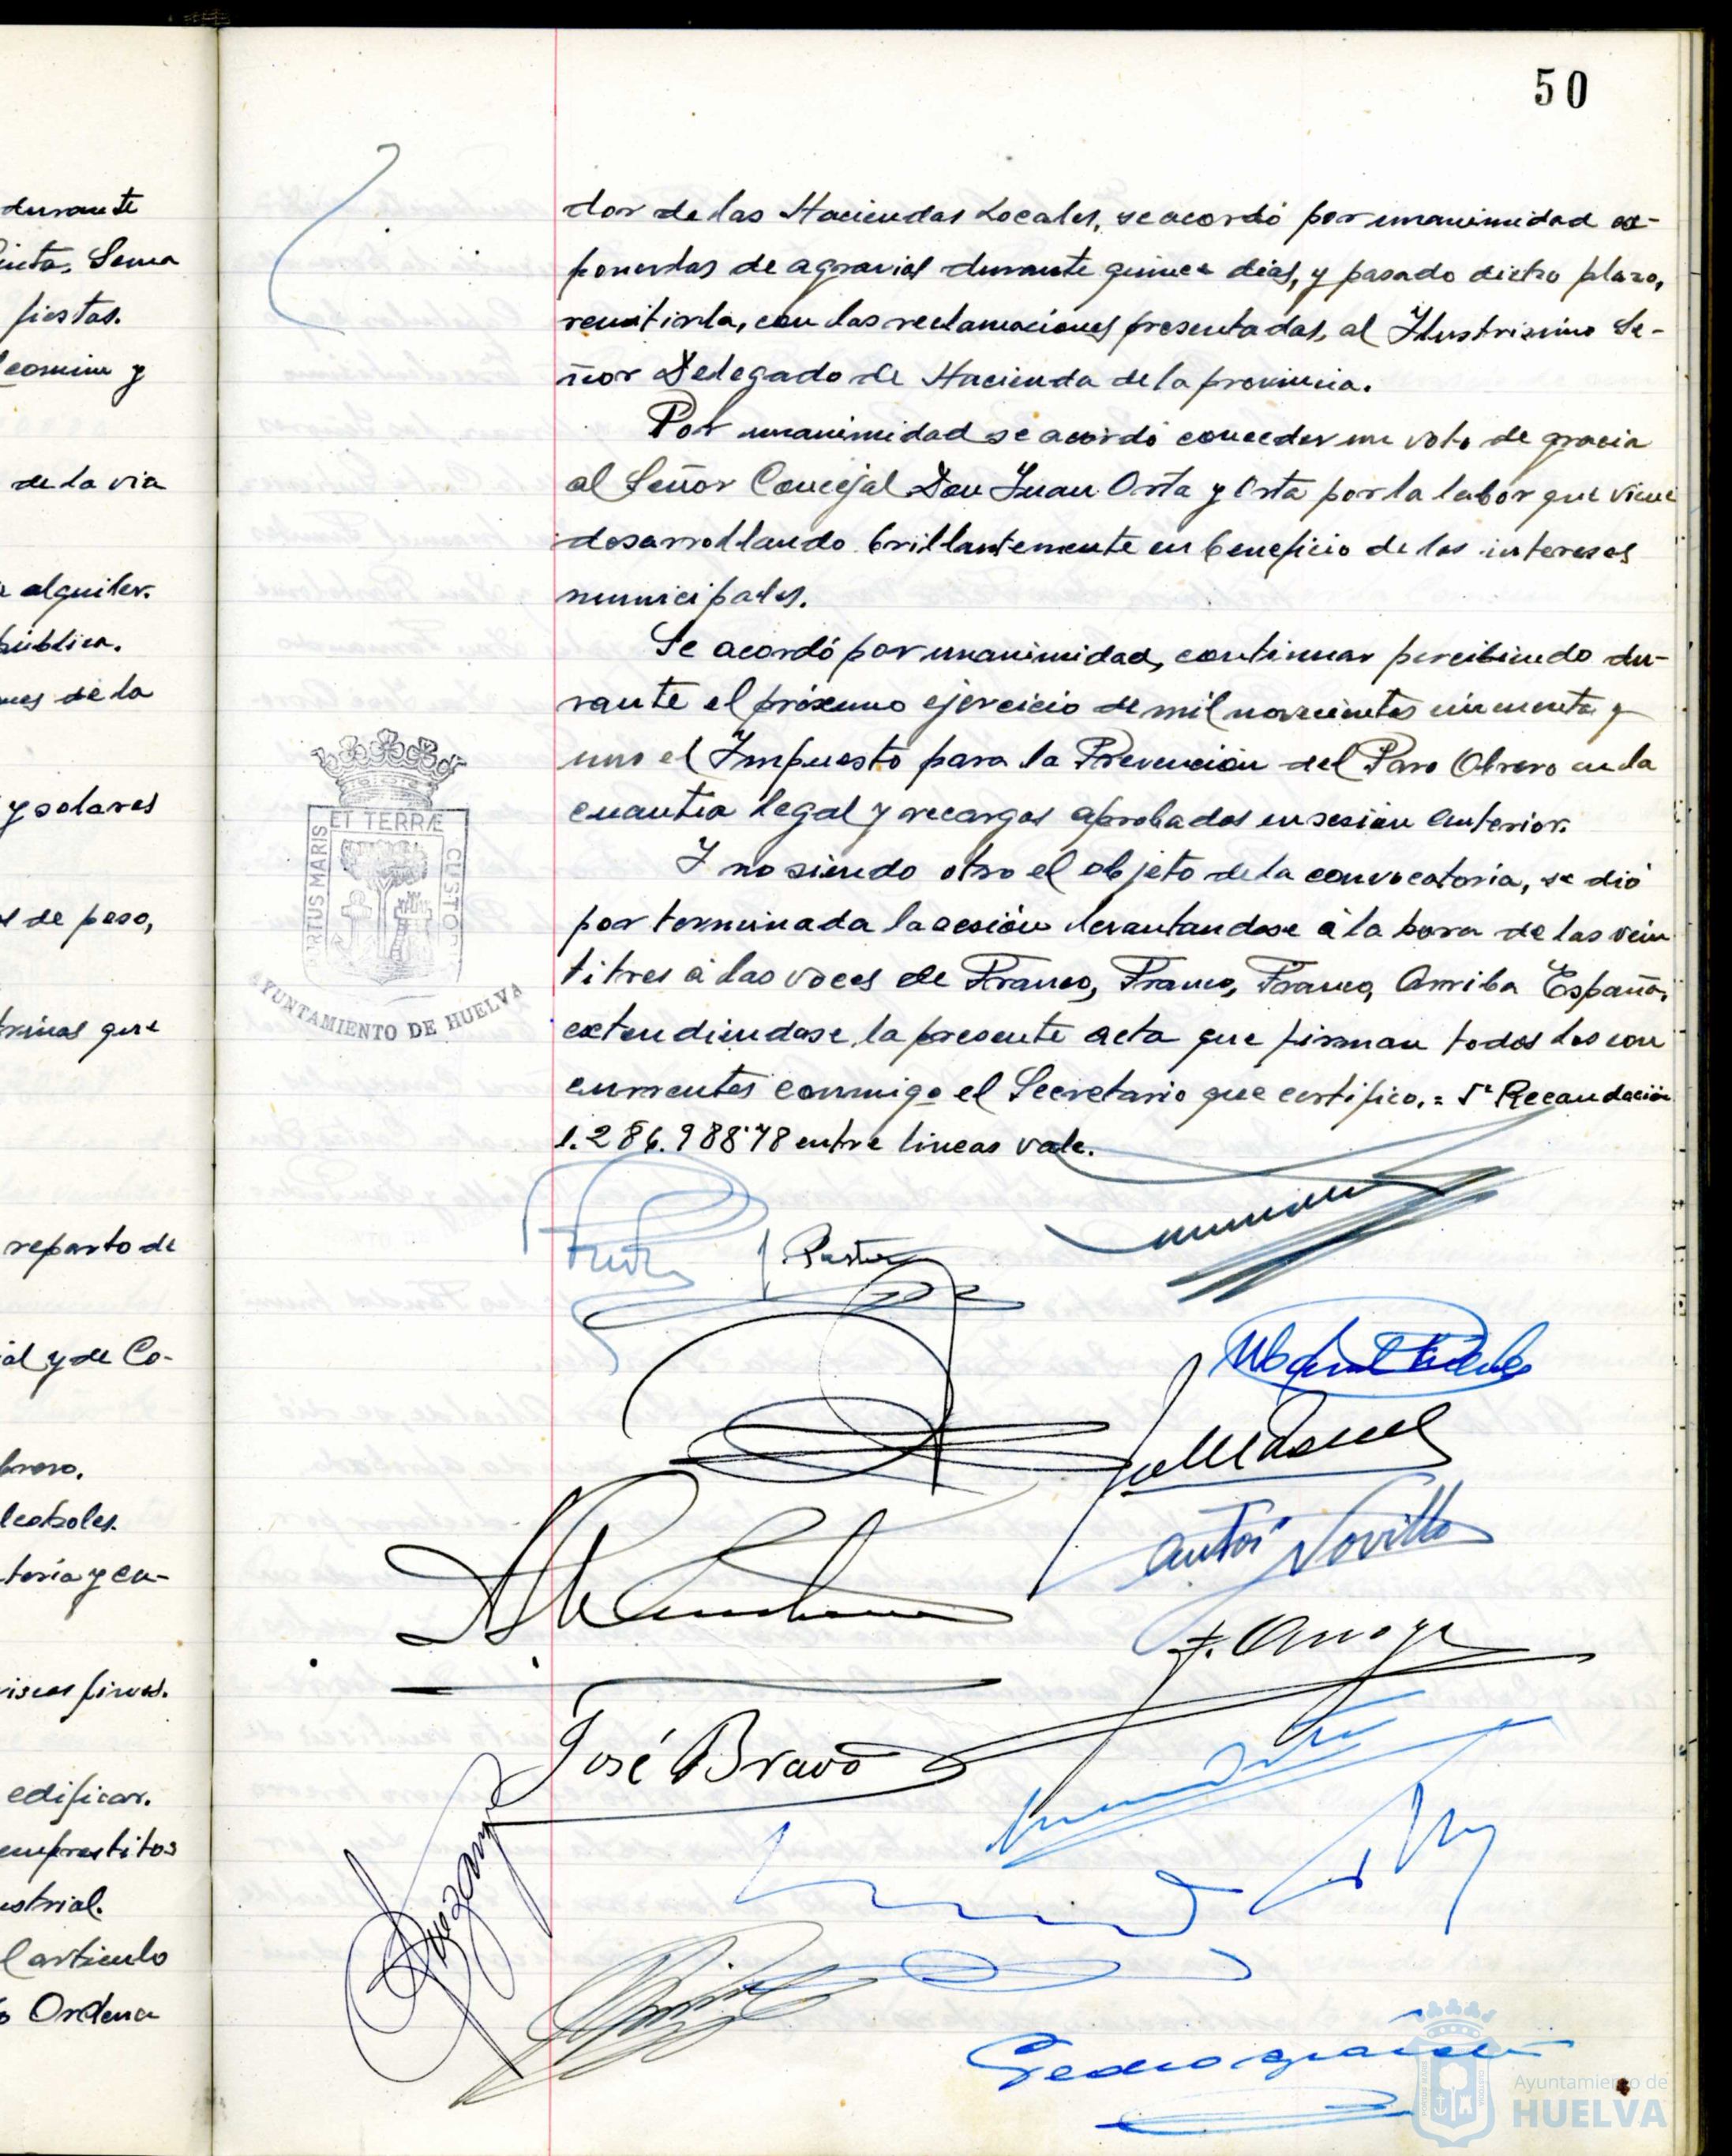 50
durante
fiestas.
comun y
de la via
alquiler.
pública.
de la
y solares
de peso,
que
reparto de
y de Co-
finos.
edificar.
emprestitos
l articulo
Ordena
dor de las Haciendas Locales, se acordó por unanimidad ex-
ponerlas de agravios durante quince dias, y pasado dicho plazo,
remitirla, con las reclamaciones presentadas, al Ilustrisimo Se-
ñor Delegado de Hacienda de la provincia.
Por unanimidad se acordó conceder un voto de gracia
al Señor Concejal Don Juan Orta y Orta por la labor que viene
desarrollando brillantemente en beneficio de los intereses
municipales.
Se acordó por unanimidad, continuar percibiendo du-
rante el próximo ejercicio de mil novecientos cincuenta y
uno el Impuesto para la Prevención del Paro Obrero en la
cuantia legal y recargos aprobados en sesión anterior.
Y no siendo otro el objeto de la convocatoria, se dió
por terminada la sesión levantandose á la hora de las vein
titres á las voces de Franco, Franco, Franco, Arriba España,
extendiendose la presente acta que firman todos los con
currentes conmigo el Secretario que certifico.= Recaudación
1.286.988'78 entre lineas vale.
PORTUS MARIS ET TERRÆ CUSTO
AYUNTAMIENTO DE HUELVA
J. Pastor
Antº Novillo
José Bravo
Ayuntamiento de
HUELVA